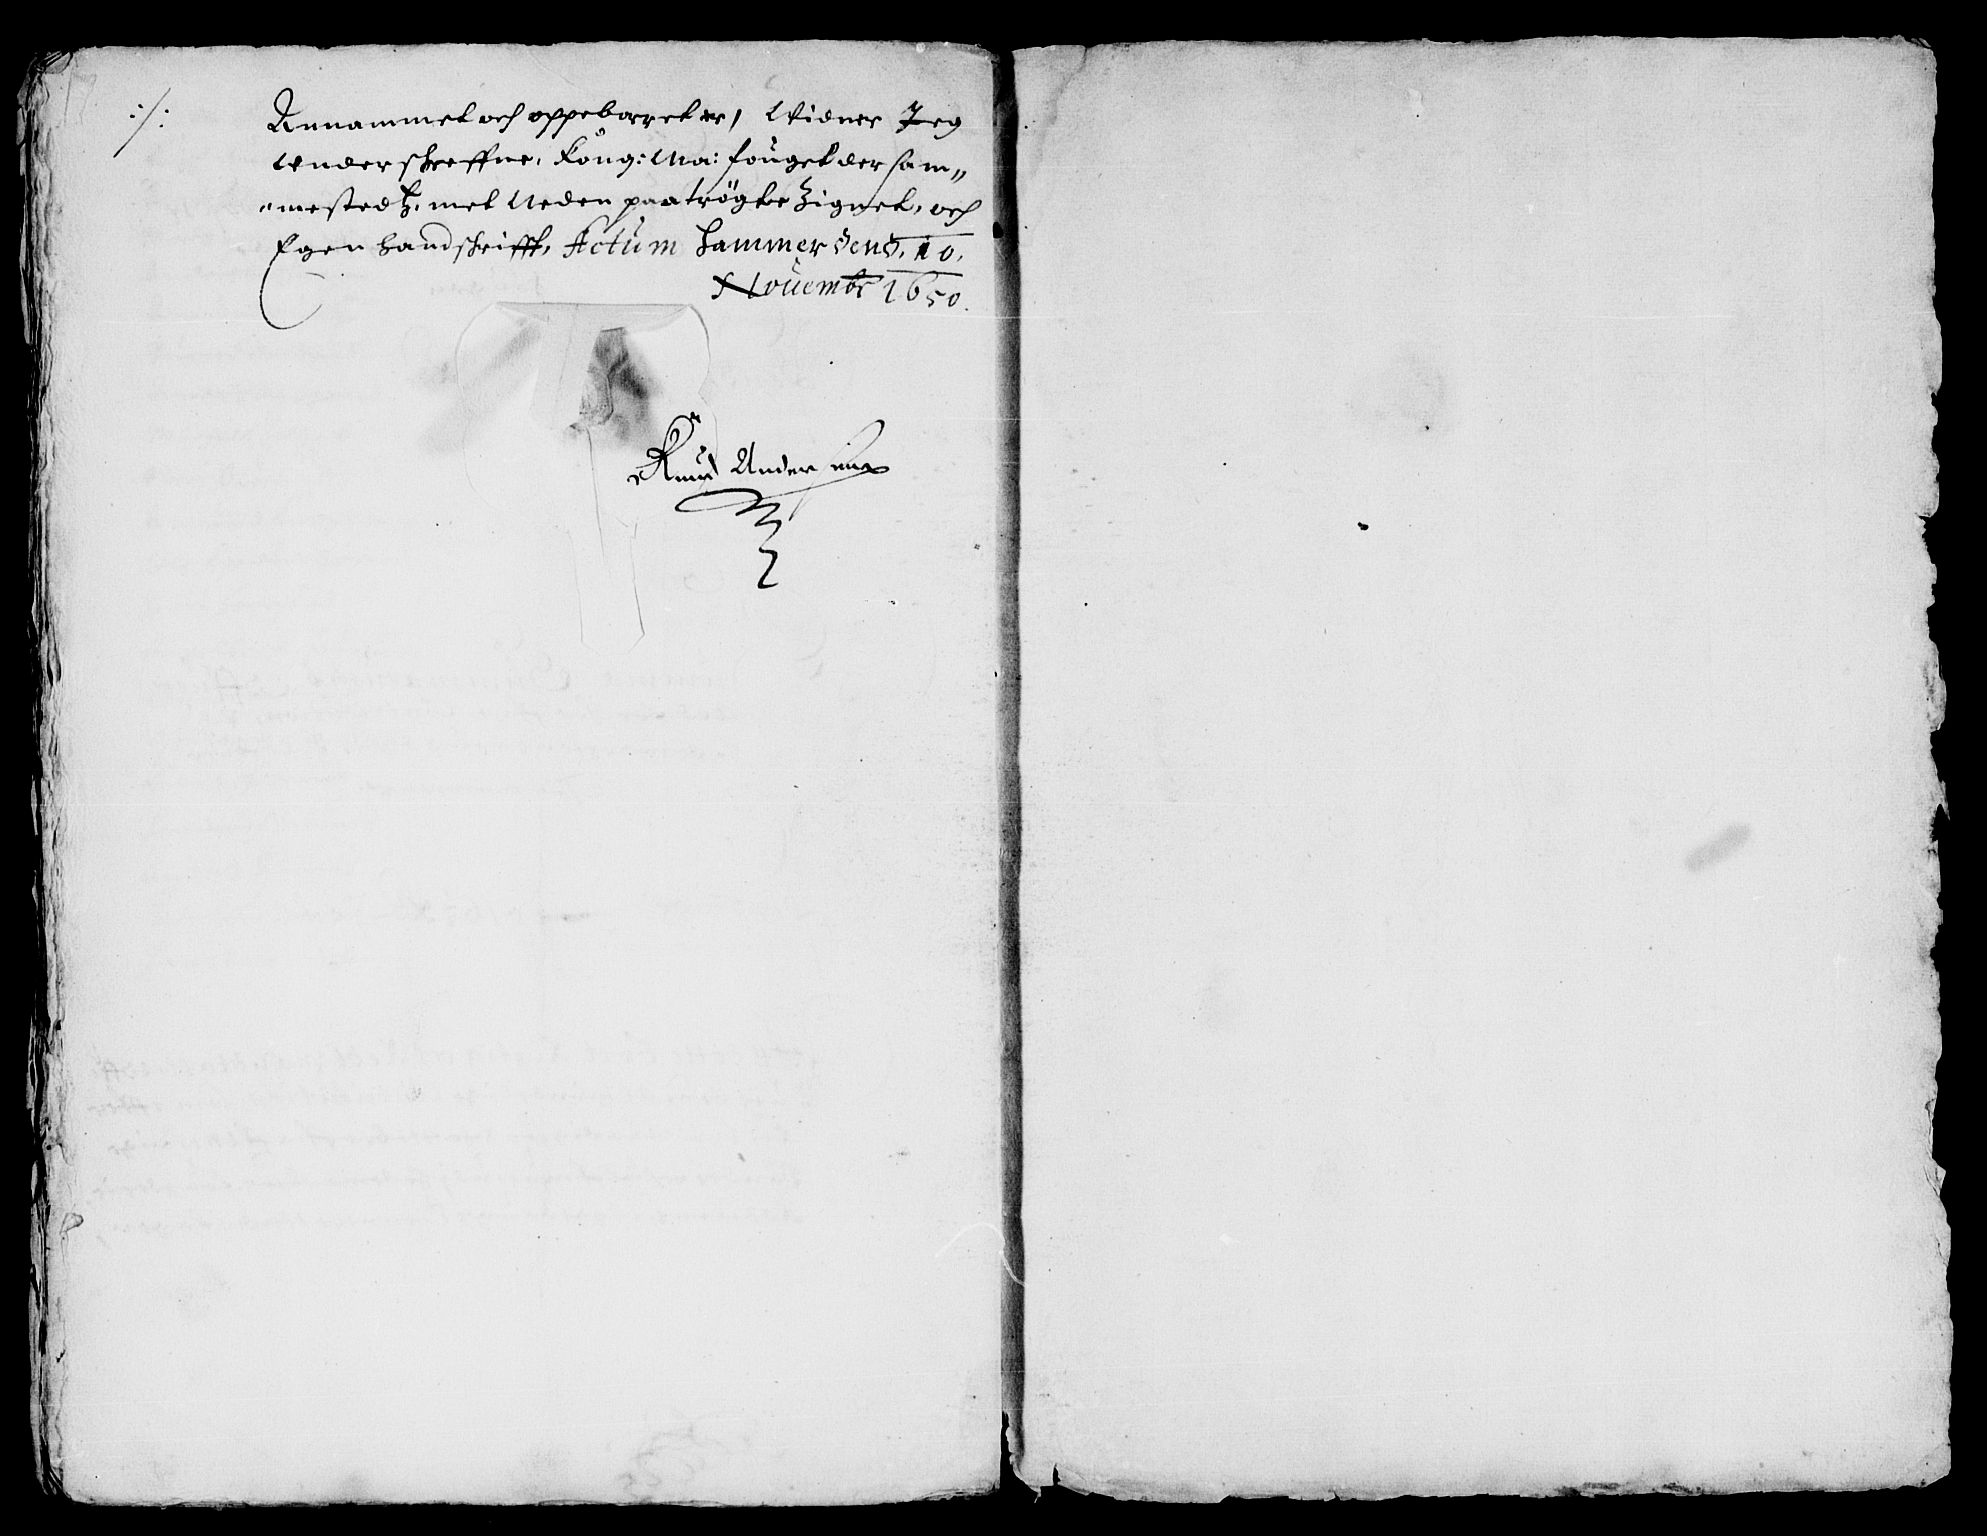 :/: Annammet och oppeborret er, Widner Jeg
Underschreffne, Kong: Ma: fouget der sam„
„mestedtz, met Neden paatrögte Zignet, och
Egen handschrifft, Actum Hammer den 10.
Nouembr 1650.
Knud Andersen